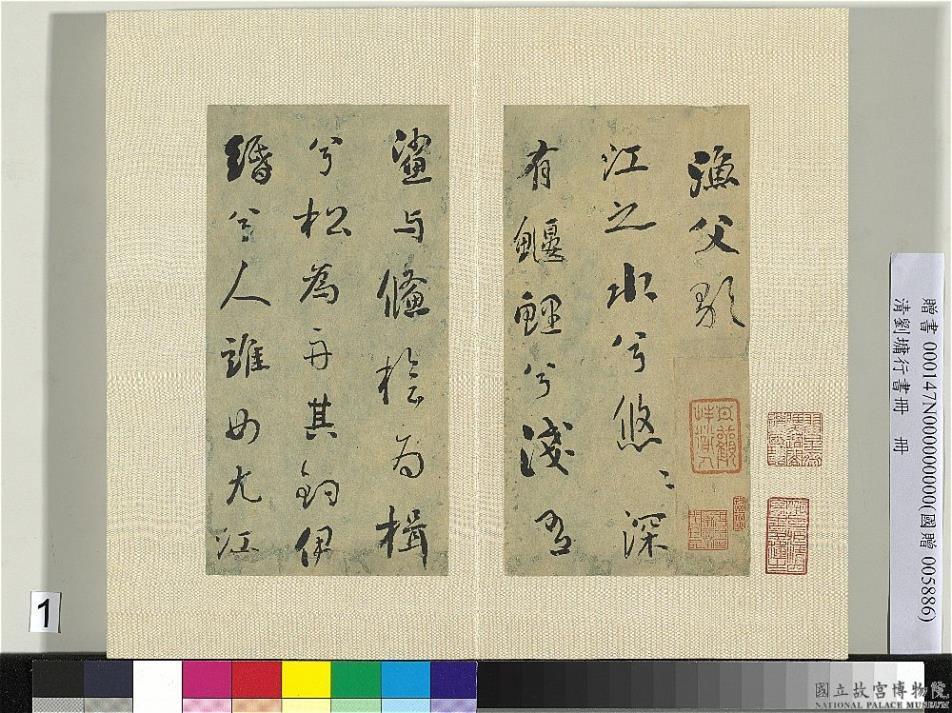 漁父歌
江之水兮悠〻深
有鰋鯉兮淺有
鯊與鯈檜為楫
兮松為舟其釣伊
緡兮人誰毋尤江
贈書 000147N000000000(國贈 005886)
清劉墉行書冊 冊
1
國立故宮博物院
NATIONAL PALACE MUSEUM